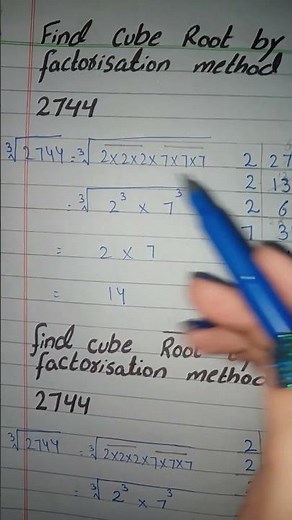 Find Cube Root by
factorisation method
2744
∛2744 = ∛2×2×2×7×7×7
= ∛2³ × 7³
= 2 × 7
= 14
2 27
2 13
2 6
7 3
find cube Root by
factorisation method
2744
∛2744 = ∛2×2×2×7×7×7
= ∛2³ × 7³
2
2